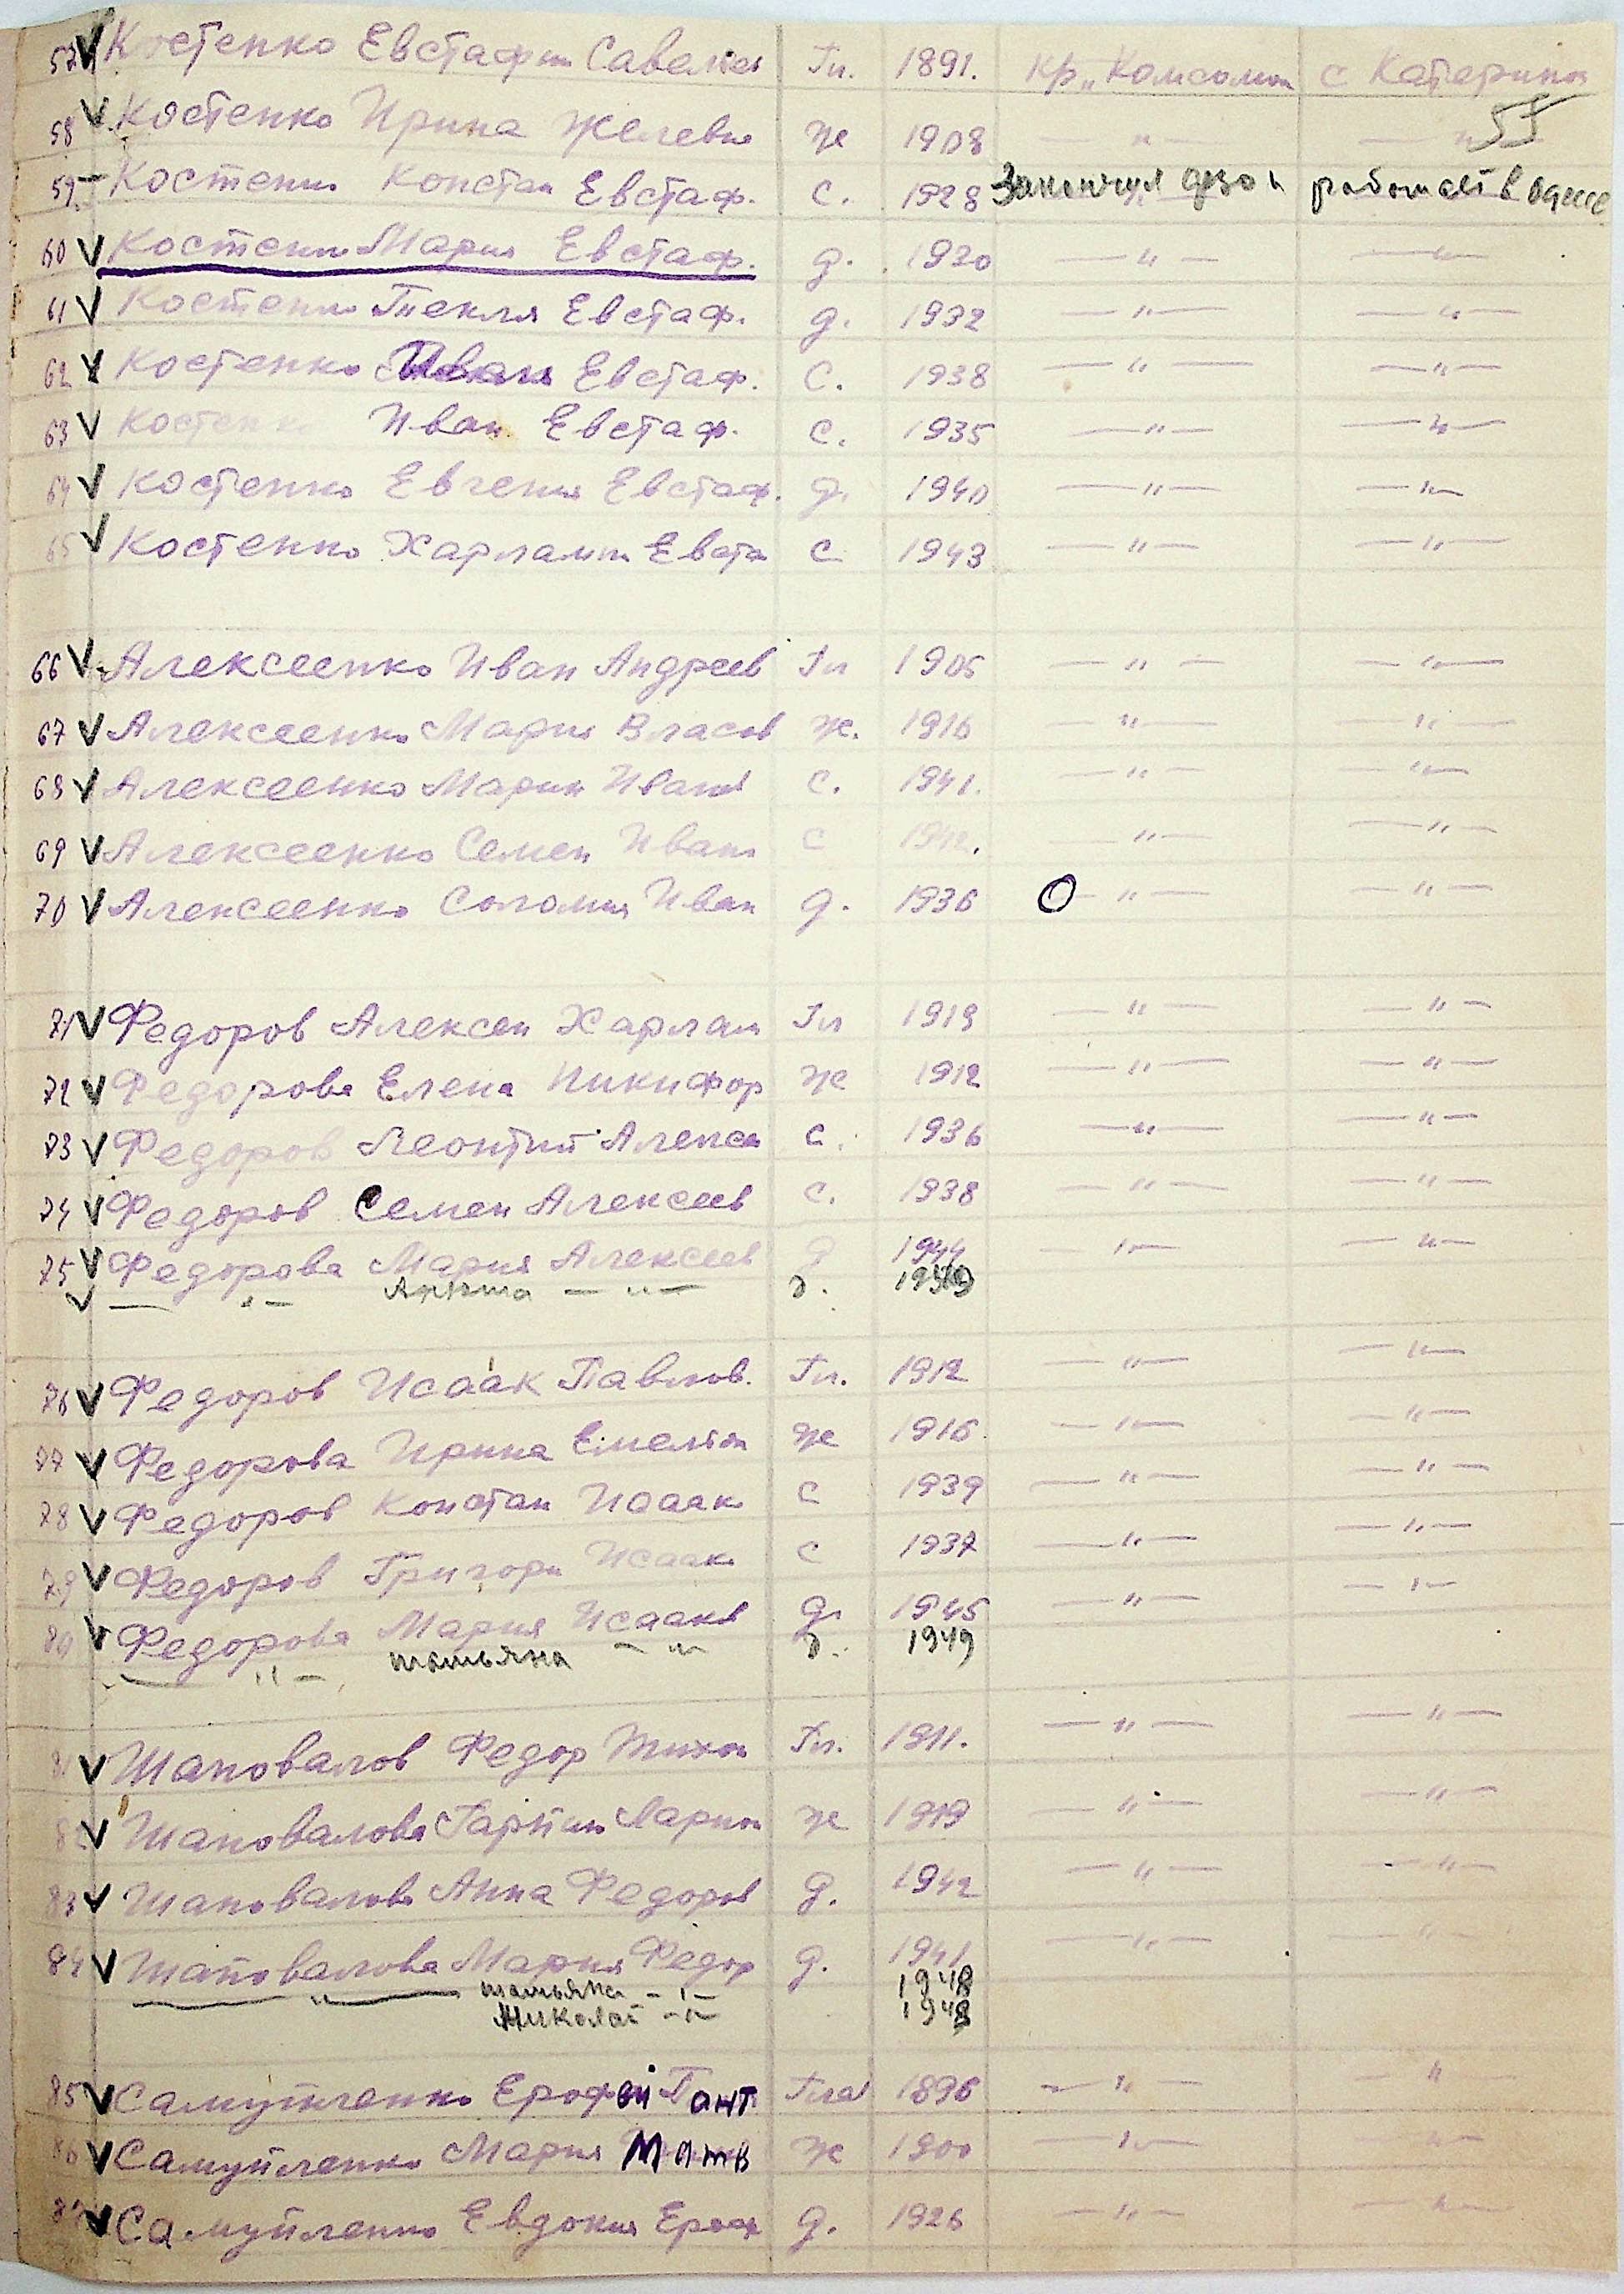 57 V Костенко Евстафии Савелиев Гл. 1891. кр. „Комсомол с Катеринк
55
58 V Костенко Ирина Ж 1908 — " — — " —
59 — Костенко Констан Евстаф. С. 1928 Закончил работает в Одессе
60 V Костенко Мария Евстаф. д. 1930 — " — — " —
61 V Костенко Текля Евстаф. д. 1932 — " — — " —
62 V Костенко Евстаф. С. 1938 — " — — " —
63 V Костенко Иван Евстаф. С. 1935 — " — — " —
64 V Костенко Евгения Евстаф. д. 1940 — " — — " —
65 V Костенко Харлампи Евста С 1943 — " — — " —
66 V Алексеенко Иван Андреев Гл 1905 — " — — " —
67 V Алексеенко Мария Власов Ж. 1916 — " — — " —
68 V Алексеенко Марин Иванов С. 1941. — " — — " —
69 V Алексеенко Семен Иван С 1942. — " — — " —
70 V Алексеенко Соломия Иван д. 1936 О — " — — " —
71 V Федоров Алексеи Харлам Гл 1919 — " — — " —
72 V Федорова Елена Никифор Ж 1912 — " — — " —
73 V Федоров Леонтий Алексе С. 1936 — " — — " —
74 V Федоров Семен Алексеев С. 1938 — " — — " —
75 V Федорова Мария Алексеев д 1944 — " — — " —
V — " — — " — д.
76 V Федоров Исаак Павлов. Гл. 1912 — " — — " —
77 V Федорова Ирина Емелян Ж 1916 — " — — " —
78 V Федоров Констан Исаак С 1939 — " — — " —
79 V Федоров Григори Исаак С 1937 — " — — " —
80 V Федорова Мария Исаакв д. 1945 — " — — " —
— " — татьяна — " д. 1949
81 V Шаповалов Федор Тихон Гл. 1911. — " — — " —
82 V Шаповалова Ларион Ж 1919 — " — — " —
83 V Шаповалова Анна Федоров д. 1942 — " — — " —
84 V Шаповалова Мария Федор д. 1941 — " — — " —
— " — татьяна — " — 1948
Николай — " — 1948
85 V Самуйленко Ерофей Гл 1896 — " — "
86 V Самуйленко Мария Матв Ж 1900 — " — — " —
87 V Самуйленко Евдокия Ероф д. 1926 — " — — " —